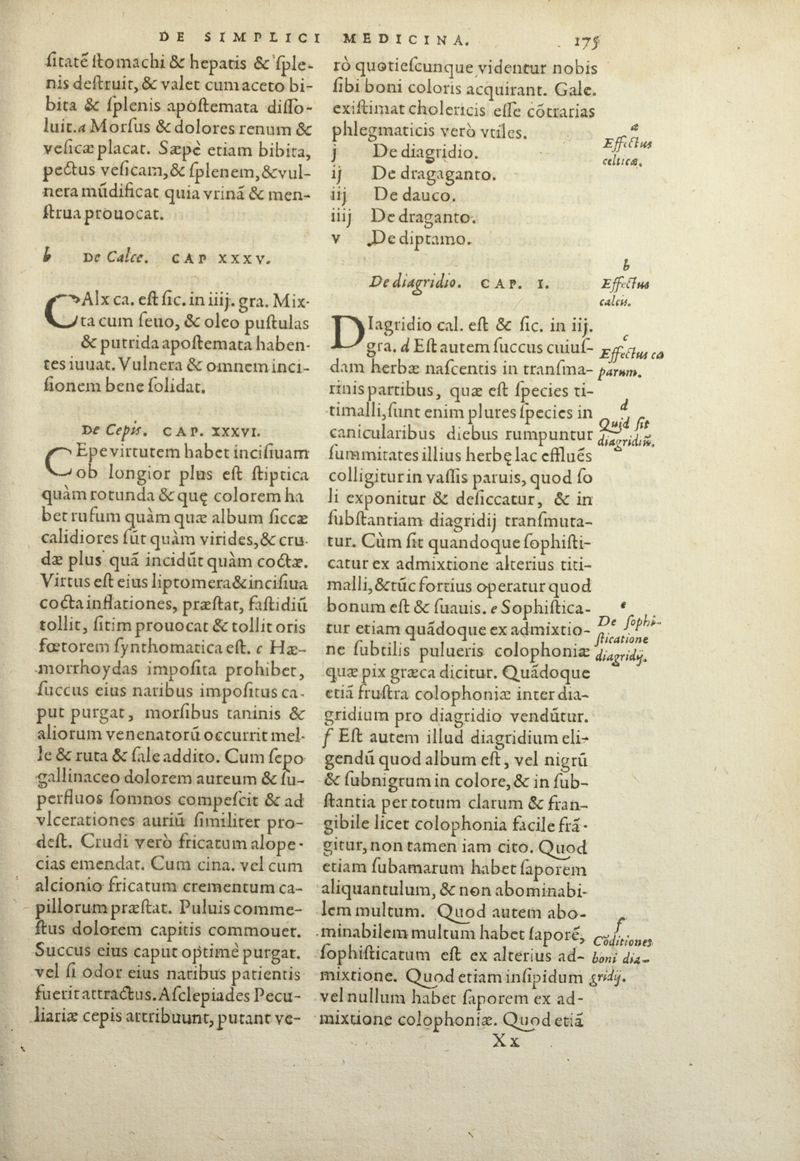 DE SIMPLICI MEDICINA. 175
ſitatẽ ſtomachi & hepatis & ſple-
nis deſtruit, & valet cum aceto bi-
bita & ſplenis apoſtemata diſſo-
luit. a Morſus & dolores renum &
veſicæ placat. Sæpè etiam bibita,
pectus veſicam, & ſplenem, & vul-
nera mũdificat quia vrinã & men-
ſtrua prouocat.
b De Calce. CAP XXXV.
CAlx ca. eſt ſic. in iiij. gra. Mix-
ta cum ſeuo, & oleo puſtulas
& putrida apoſtemata haben-
tes iuuat. Vulnera & omnem inci-
ſionem bene ſolidat.
De Cepis. CAP. XXXVI.
CEpe virtutem habet inciſiuam
ob longior plus eſt ſtiptica
quàm rotunda & quę colorem ha
bet rufum quàm quæ album ſiccæ
calidiores ſũt quàm virides, & cru-
dæ plus quã incidũt quàm coctæ.
Virtus eſt eius liptomera & inciſiua
cocta inflationes, præſtat, faſtidiũ
tollit, ſitim prouocat & tollit oris
fœtorem ſynthomatica eſt. c Hæ-
morrhoydas impoſita prohibet,
ſuccus eius naribus impoſitus ca-
put purgat, morſibus taninis &
aliorum venenatorũ occurrit mel-
le & ruta & ſale addito. Cum ſepo
gallinaceo dolorem aureum & ſu-
perfluos ſomnos compeſcit & ad
vlcerationes auriũ ſimiliter pro-
deſt. Crudi verò fricatum alope-
cias emendat. Cum cina. vel cum
alcionio fricatum crementum ca-
pillorum præſtat. Puluis comme-
ſtus dolorem capitis commouet.
Succus eius caput optimè purgat.
vel ſi odor eius naribus patientis
fuerit attractus. Aſclepiades Pecu-
liariæ cepis attribuunt, putant ve-
rò quotieſcunque videntur nobis
ſibi boni coloris acquirant. Gale.
exiſtimat cholericis eſſe cõtrarias
phlegmaticis verò vtiles.
j De diagridio.
ij De dragaganto.
iij De dauco.
iiij De draganto.
v De diptamo.
De diagridio. CAP. I.
DIagridio cal. eſt & ſic. in iij.
gra. d Eſt autem ſuccus cuiuſ-
dam herbæ naſcentis in tranſma-
rinis partibus, quæ eſt ſpecies ti-
timalli, ſunt enim plures ſpecies in
canicularibus diebus rumpuntur
ſummitates illius herbę lac efflués
colligitur in vaſſis paruis, quod ſo
li exponitur & deſiccatur, & in
ſubſtantiam diagridij tranſmuta-
tur. Cùm ſit quandoque ſophiſti-
catur ex admixtione alterius titi-
malli, & tũc fortius operatur quod
bonum eſt & ſuauis. e Sophiſtica-
tur etiam quãdoque ex admixtio-
ne ſubtilis pulueris colophoniæ
quæ pix græca dicitur. Quãdoque
etiã fruſtra colophoniæ inter dia-
gridium pro diagridio vendũtur.
f Eſt autem illud diagridium eli-
gendũ quod album eſt, vel nigrũ
& ſubnigrum in colore, & in ſub-
ſtantia per totum clarum & fran-
gibile licet colophonia facile frã-
gitur, non tamen iam cito. Quod
etiam ſubamarum habet ſaporem
aliquantulum, & non abominabi-
lem multum. Quod autem abo-
minabilem multum habet ſaporẽ,
ſophiſticatum eſt ex alterius ad-
mixtione. Quod etiam inſipidum
vel nullum habet ſaporem ex ad-
mixtione colophoniæ. Quod etiã
Xx
a
Effectus
celtica.
b
Effectus
calcis.
c
Effectus ca
parum.
d
Quid ſit
diagridiũ.
e
De ſophi-
ſticatione
diagridij.
f
Cõditiones
boni dia-
gridij.